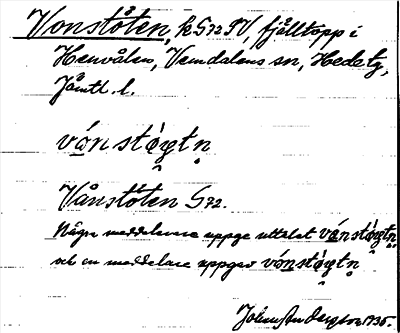 Vonstöten, k G72 SV, fjälltopp i
Henvålen, Vemdalens sn, Hede tg,
Jämtl. l.
vónstø̀gtn̥
Vånstöten G72.
Några meddelare uppge uttalet vónstø̀gtn̥
och en meddelare uppgav vónstø̀gtn̥
1935.